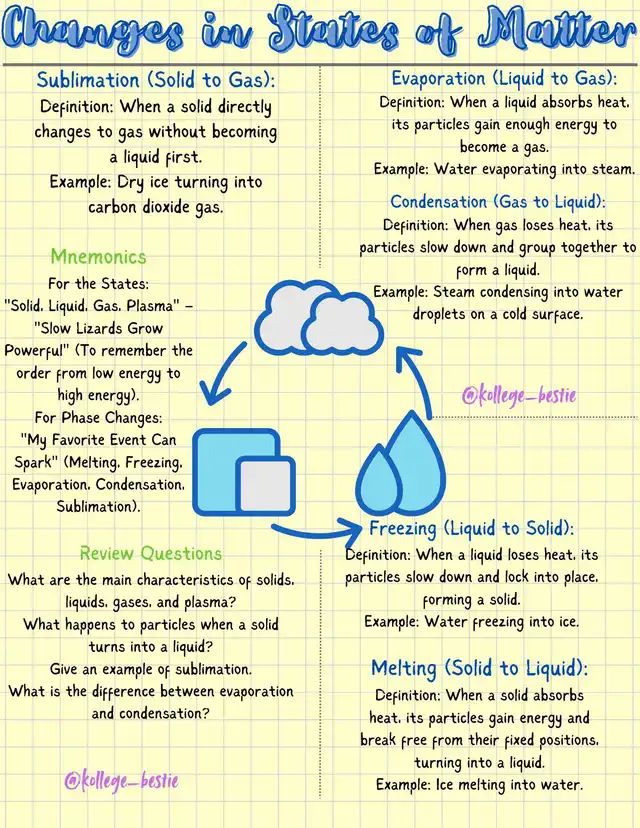 Changes in States of Matter
Sublimation (Solid to Gas):
Definition: When a solid directly
changes to gas without becoming
a liquid first.
Example: Dry ice turning into
carbon dioxide gas.
Mnemonics
For the States:
"Solid, Liquid, Gas, Plasma" –
"Slow Lizards Grow
Powerful" (To remember the
order from low energy to
high energy).
For Phase Changes:
"My Favorite Event Can
Spark" (Melting, Freezing,
Evaporation, Condensation,
Sublimation).
Review Questions
What are the main characteristics of solids,
liquids, gases, and plasma?
What happens to particles when a solid
turns into a liquid?
Give an example of sublimation.
What is the difference between evaporation
and condensation?
@kollege_bestie
Evaporation (Liquid to Gas):
Definition: When a liquid absorbs heat,
its particles gain enough energy to
become a gas.
Example: Water evaporating into steam.
Condensation (Gas to Liquid):
Definition: When gas loses heat, its
particles slow down and group together to
form a liquid.
Example: Steam condensing into water
droplets on a cold surface.
@kollege_bestie
Freezing (Liquid to Solid):
Definition: When a liquid loses heat, its
particles slow down and lock into place,
forming a solid.
Example: Water freezing into ice.
Melting (Solid to Liquid):
Definition: When a solid absorbs
heat, its particles gain energy and
break free from their fixed positions,
turning into a liquid.
Example: Ice melting into water.